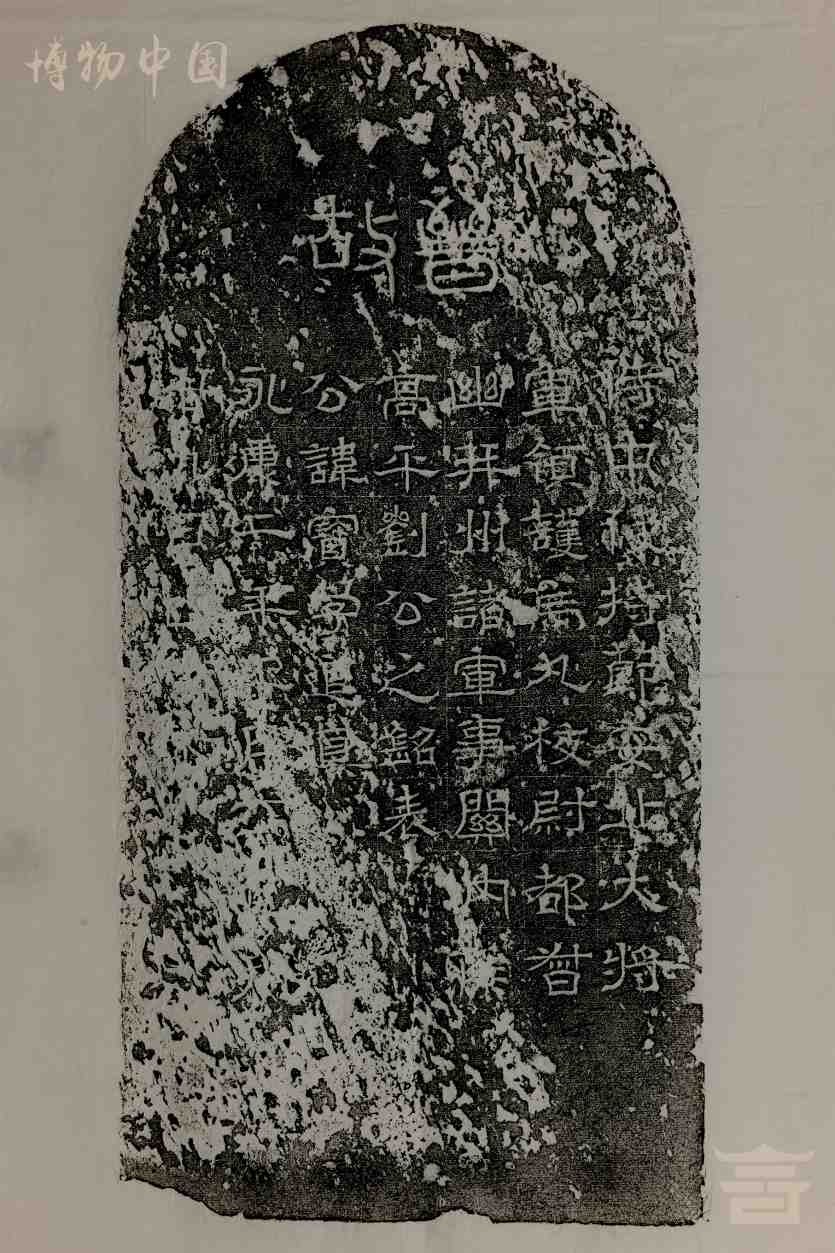 博物中国
晉故
侍中使持節安北大將
軍領護烏丸校尉都督
幽并州諸軍事關內侯
高平劉公之銘表
公諱寶字道真
永康二年
九日